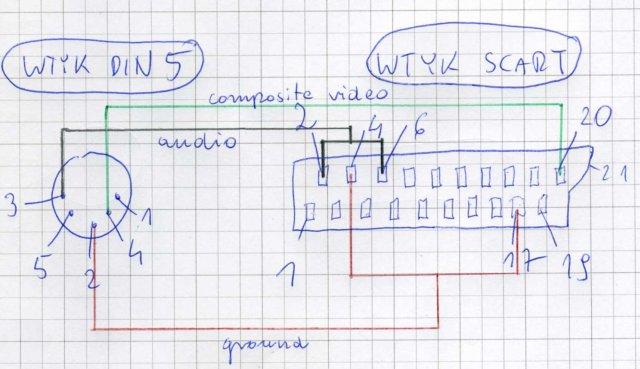 WTYK DIN 5
WTYK SCART
composite video
audio
2
4
6
20
21
3
1
5
2
4
1
17
19
ground